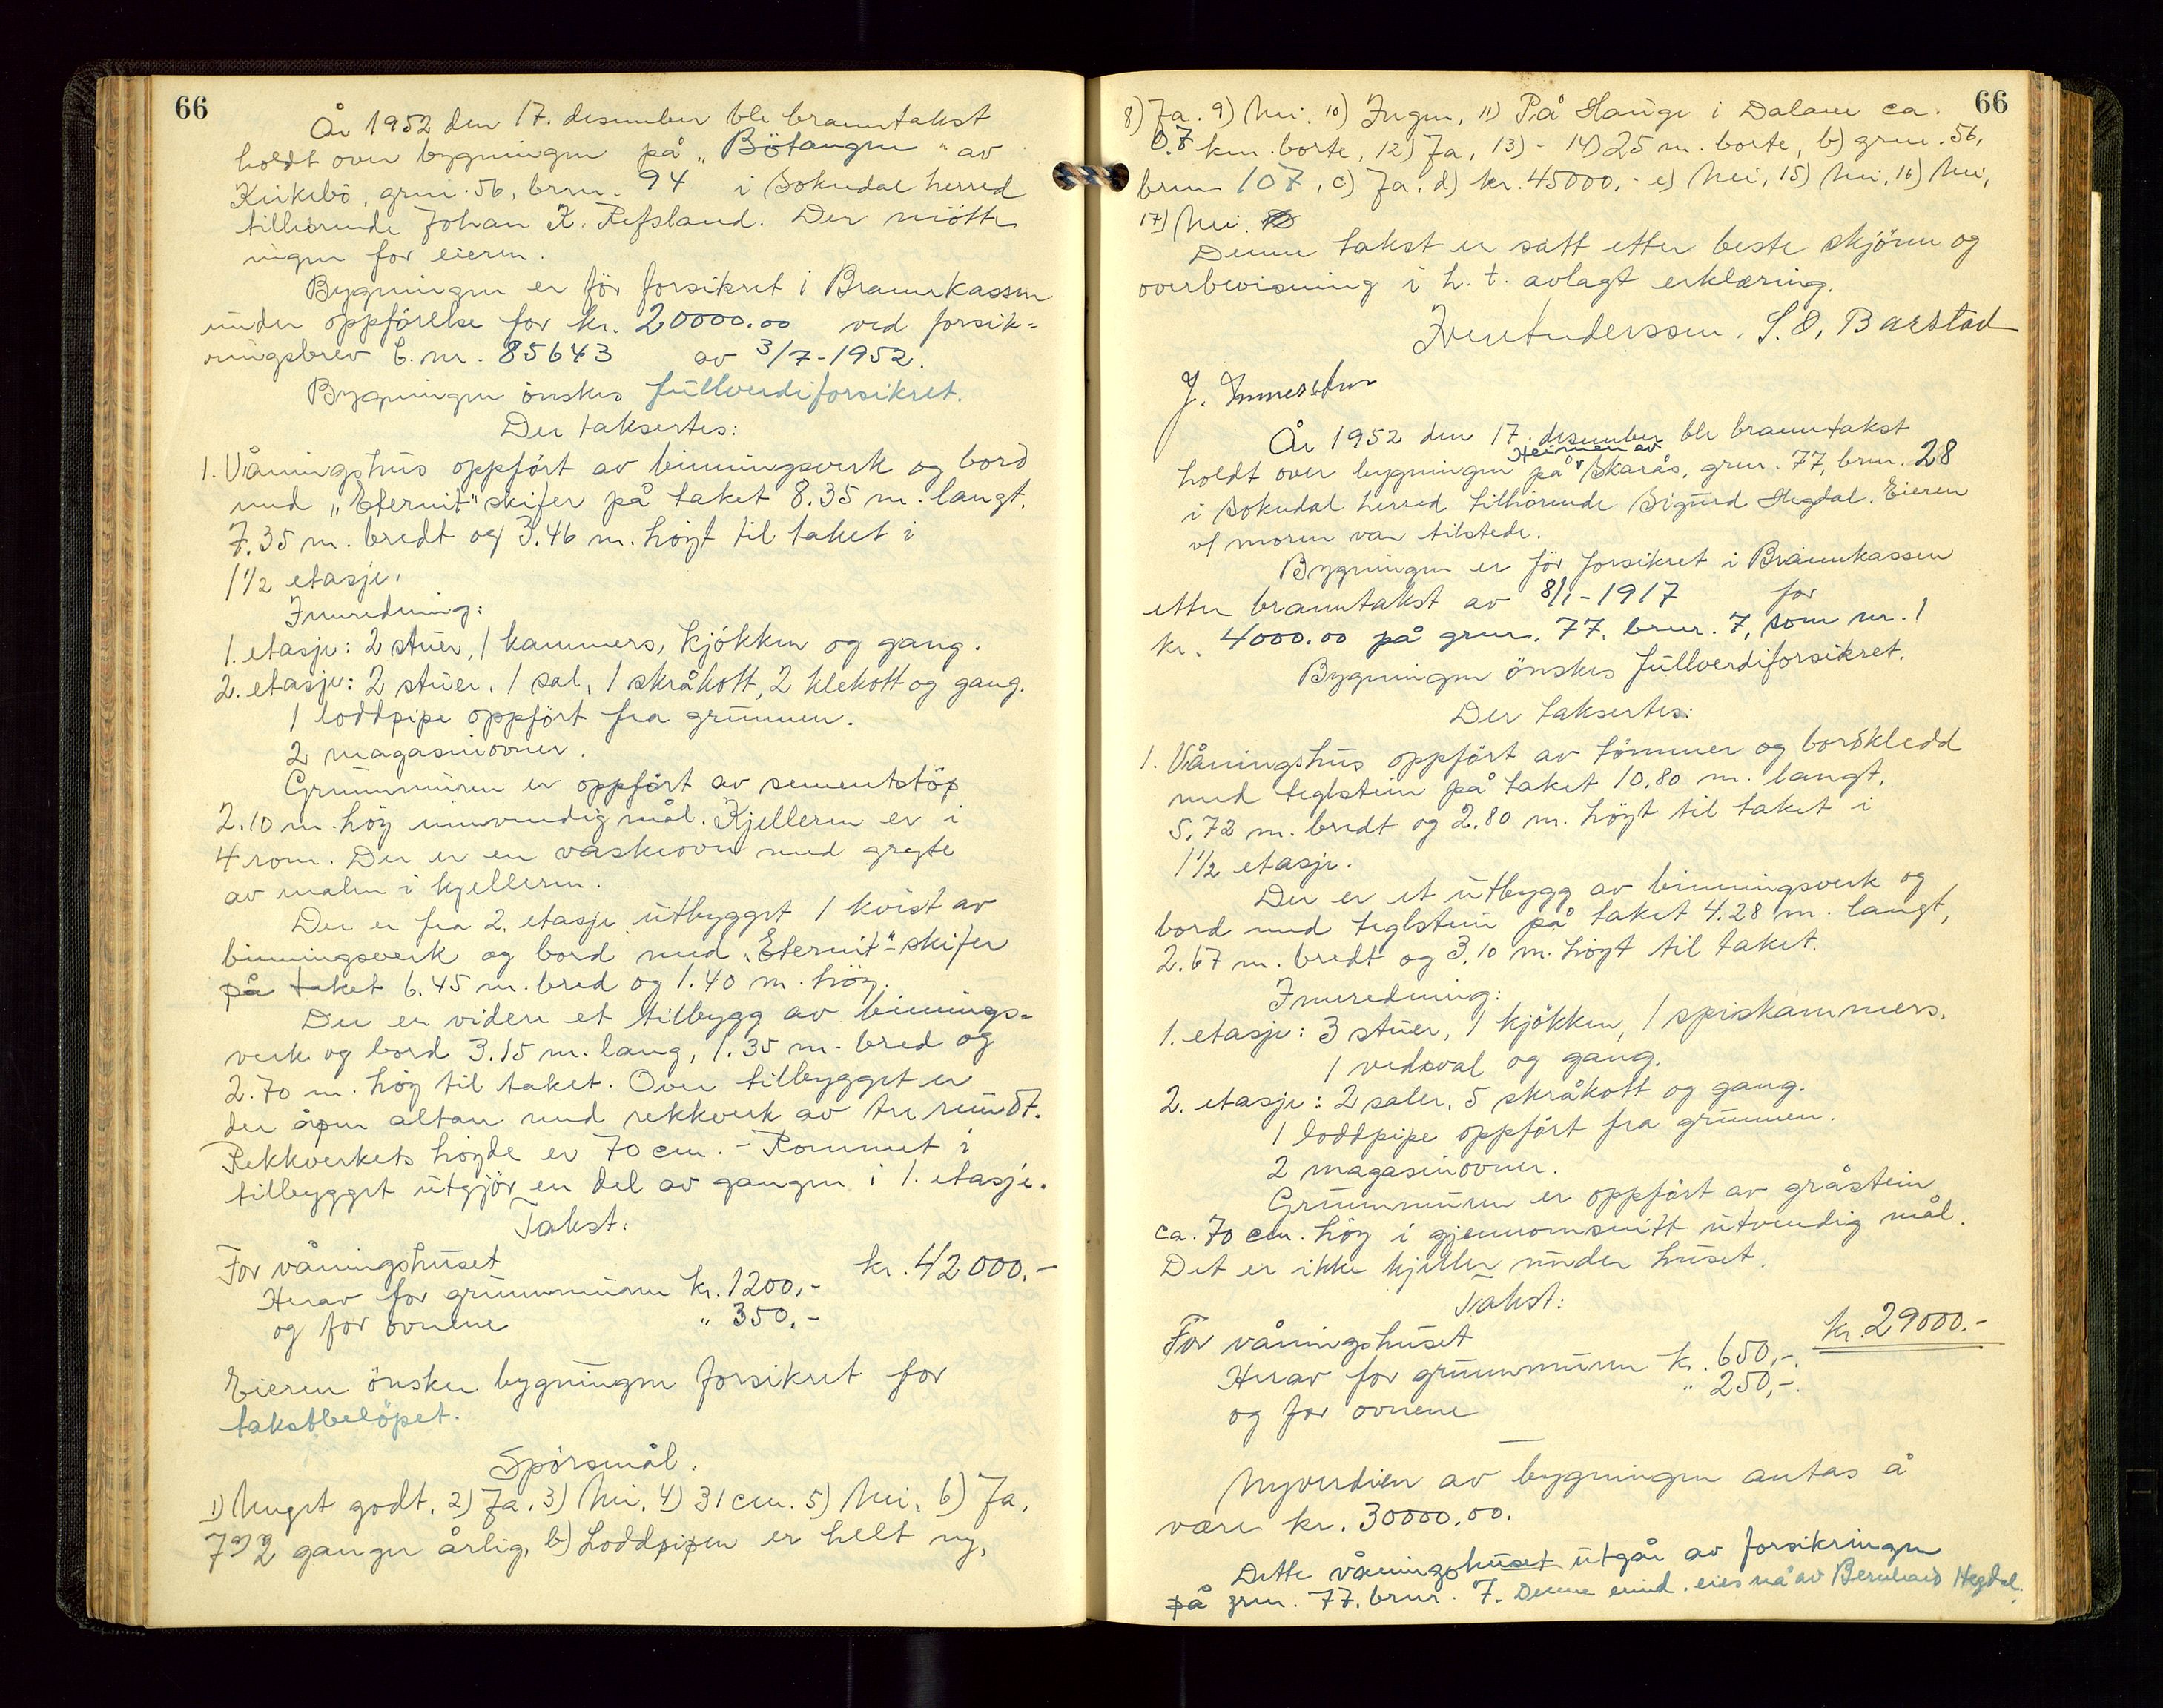 66
År 1952 den 17. desember ble branntakst
holdt over bygningen på „Bötangen" av
Kirkebö, grnr. 56, brnr. 94 i Sokndal herred
tilhörende Johan K. Refsland. Der mötte
ingen for eieren.
Bygningen er för forsikret i Brannkassen
under oppförelse for kr. 20000.00 ved forsik-
ringsbrev b.nr. 85643 av 3/7-1952.
Bygningen önskes fullverdiforsikret.
Der taksertes:
1. Våningshus oppfört av binningsverk og bord
med „Eternit" skifer på taket 8.35 m. langt.
7.35 m. bredt og 3.46 m. höyt til taket i
1 1/2 etasje.
Innredning:
1. etasje: 2 stuer, 1 kammers, kjökken og gang.
2. etasje: 2 stuer, 1 sal, 1 skråkott, 2 klekott og gang.
1 loddpipe oppfört fra grunnen.
2 magasinovner.
Grunnmuren er oppfört av sementstöp
2.10 m. höy innvendig mål. Kjelleren er i
4 rom. Der er en vaskeovn med gryte
av malm i kjelleren.
Der er fra 2. etasje utbygget 1 kvist av
binningsverk og bord med „Eternit"-skifer
på taket 6.45 m. bred og 1.40 m. höy.
Der er videre et tilbygg av binnings-
verk og bord 3.15 m. lang, 1.35 m. bred og
2.70 m. höy til taket. Over tilbygget er
der åpen altan med rekkverk av tre rundt.
Rekkverkets höyde er 70 cm. - Rommet i
tilbygget utgjör en del av gangen i 1. etasje.
Takst:
For våningshuset kr. 42000.-
Herav for grunnmuren kr. 1200,-
og for ovnene " 350.-
Eieren önsker bygningen forsikret for
takstbelöpet.
Spörsmål.
1) Meget godt. 2) Ja. 3) Nei. 4) 31 cm. 5) Nei. 6) Ja.
7 a) 2 ganger årlig, b) Loddpipen er helt ny.
66
8) Ja. 9) Nei. 10) Ingen, 11) På Hauge i Dalane ca.
0.7 km. borte, 12) Ja, 13) - 14) 25 m. borte, b) grnr. 56,
brnr 107, c) Ja. d) kr. 45000.- e) Nei, 15) Nei, 16) Nei,
17) Nei.
Denne takst er satt etter beste skjönn og
overbevisning i h. t. avlagt erklæring.
Anderssen. S. O. Barstad
J.
År 1952 den 17. desember ble branntakst
Heimen av
holdt over bygningen på Skarås, grnr. 77, brnr. 28
i Sokndal herred tilhörende Sigurd Hegdal. Eieren
v/ moren var tilstede.
Bygningen er för forsikret i Brannkassen
etter branntakst av 8/1-1917 for
kr. 4000.00 på grnr. 77, brnr. 7, som nr. 1
Bygningen önskes fullverdiforsikret.
Der taksertes:
1. Våningshus oppfört av tömmer og bordkledd
med teglstein på taket 10.80 m. langt,
5.72 m. bredt og 2.80 m. höyt til taket i
1 1/2 etasje.
Der er et utbygg av binningsverk og
bord med teglstein på taket 4.28 m. langt,
2.67 m. bredt og 3.10 m. höyt til taket.
Innredning:
1. etasje: 3 stuer, 1 kjökken, 1 spiskammers,
1 vedsval og gang.
2. etasje: 2 saler, 5 skråkott og gang.
1 loddpipe oppfört fra grunnen.
2 magasinovner.
Grunnmuren er oppfört av gråstein
ca. 70 cm. höy i gjennomsnitt utvendig mål.
Det er ikke kjeller under huset.
Takst:
For våningshuset kr. 29000.-
Herav for grunnmuren kr. 650,-
og for ovnene " 250,-
Nyverdien av bygningen antas å
være kr. 30000.00.
Dette våningshuset utgår av forsikringen
på grnr. 77, brnr. 7. Denne eiend. eies nå av Bernhard Hegdal.